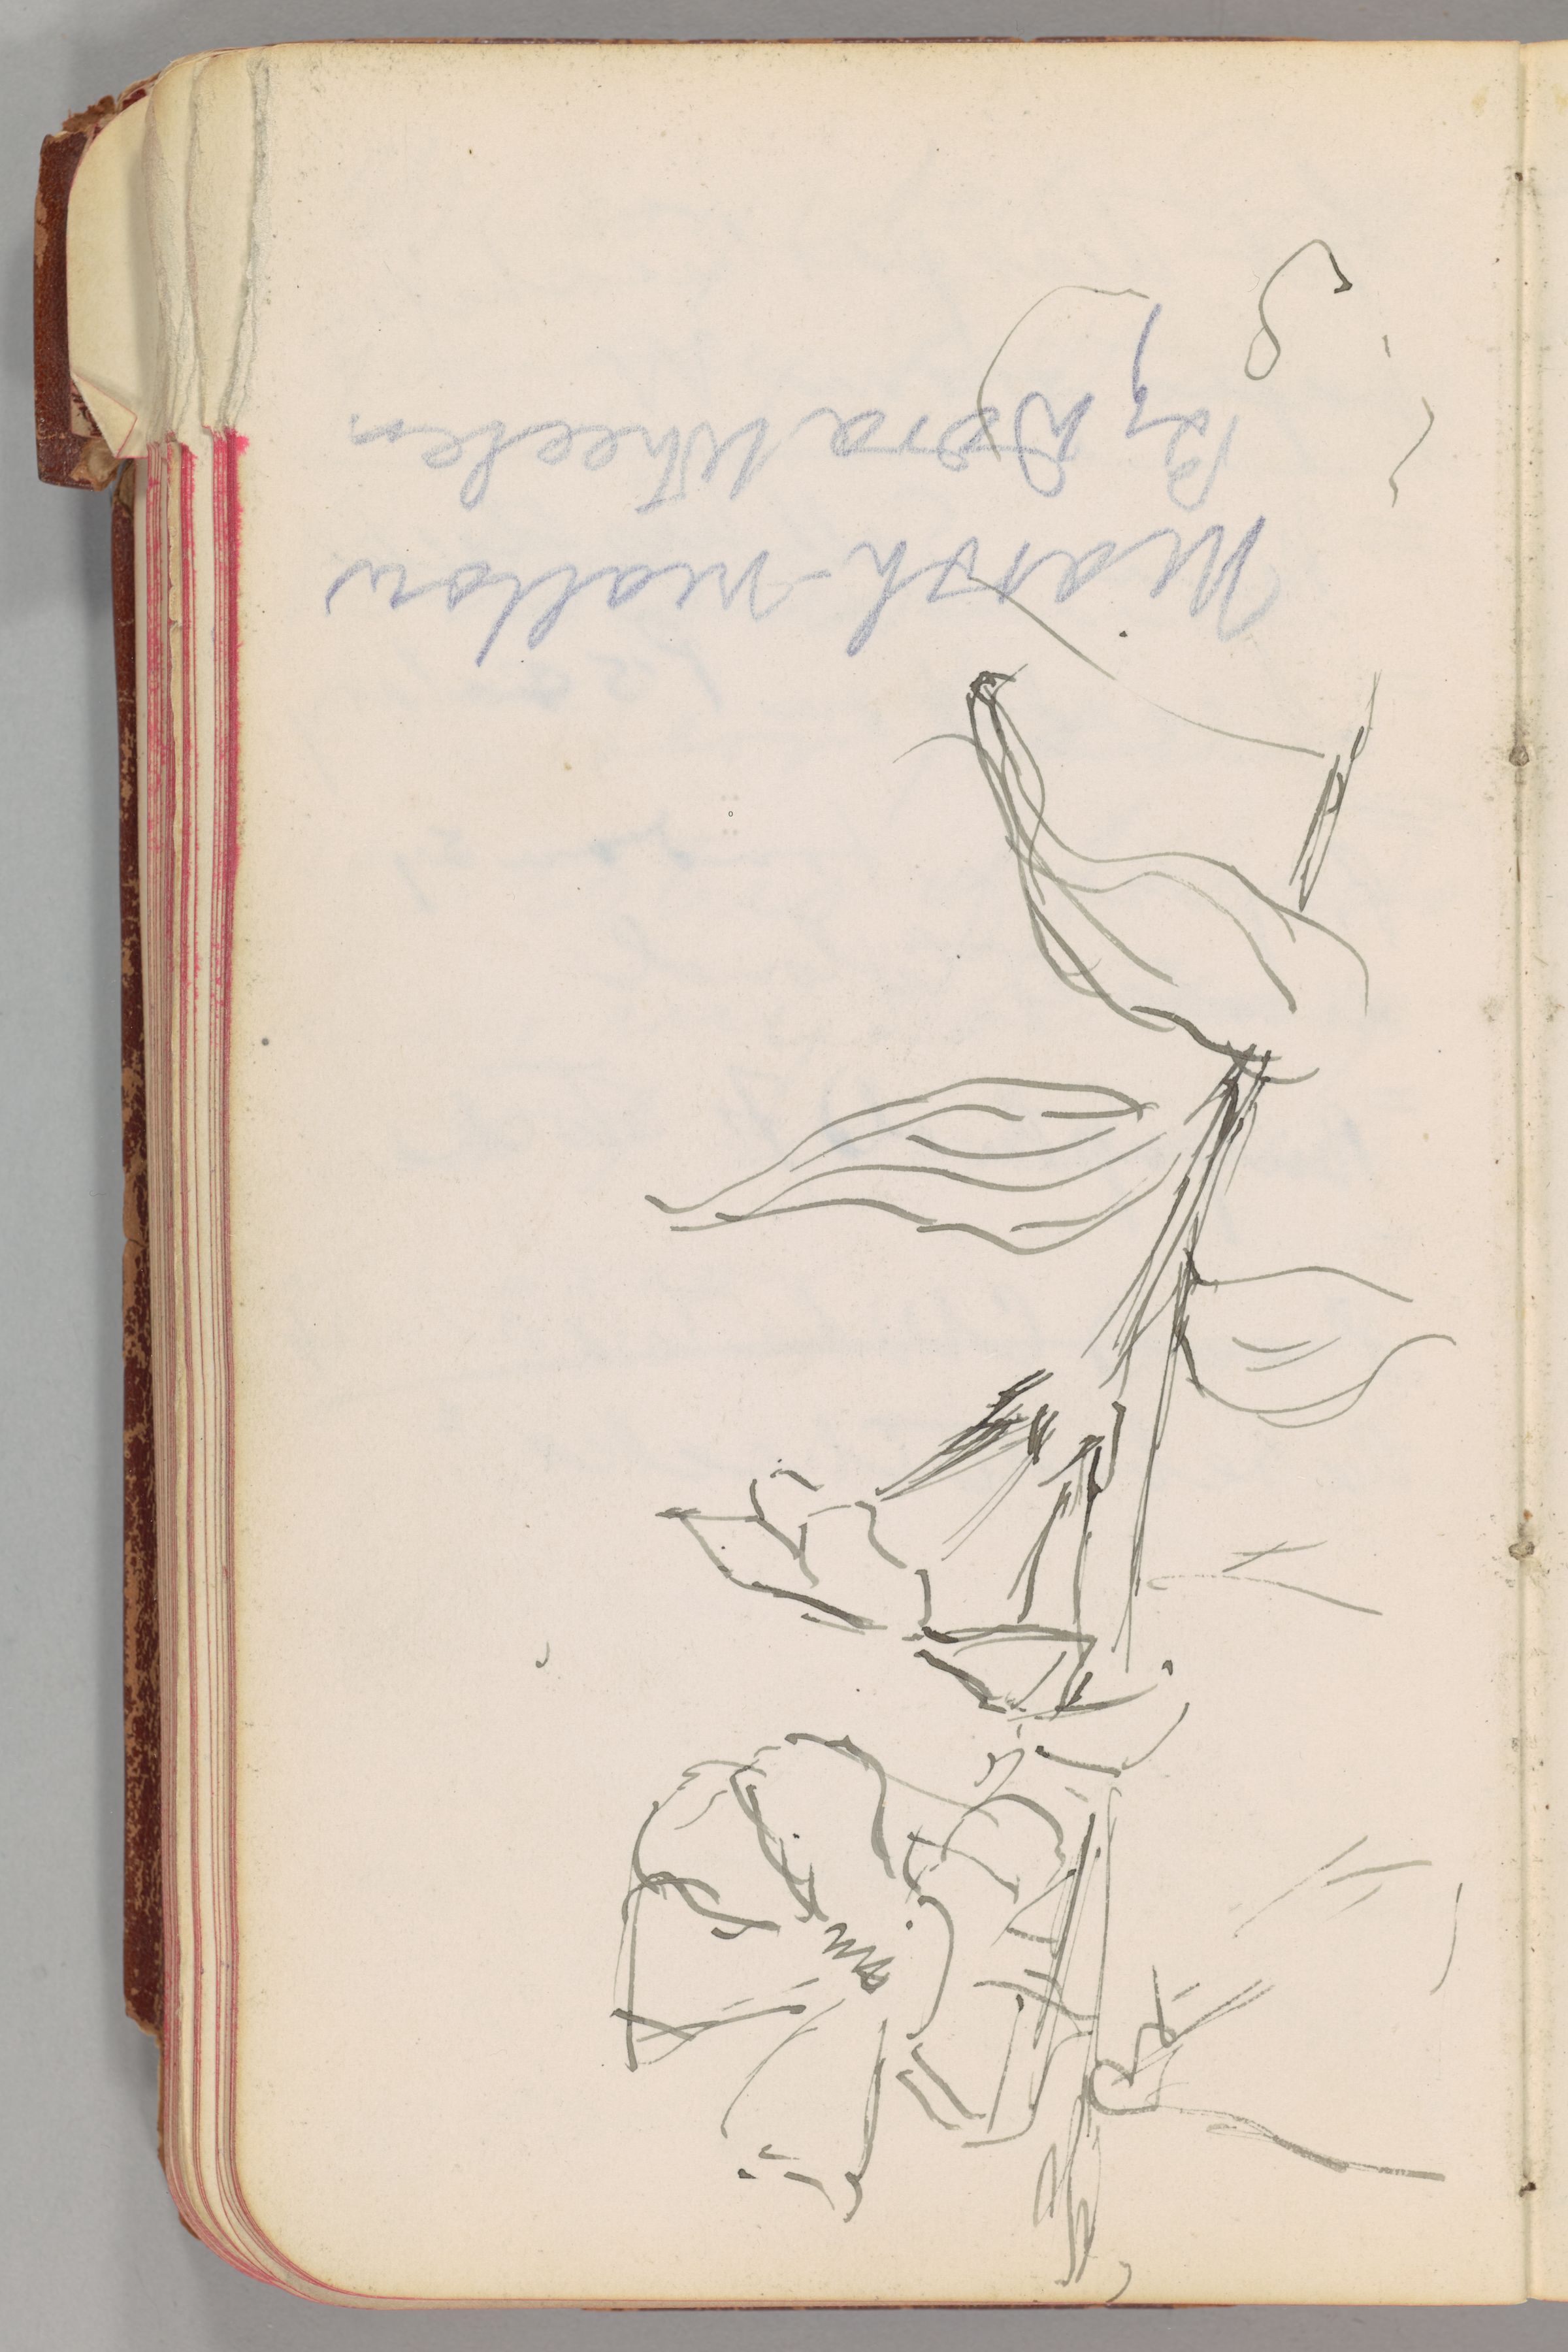 Marsh-mallow
By Dora Wheeler